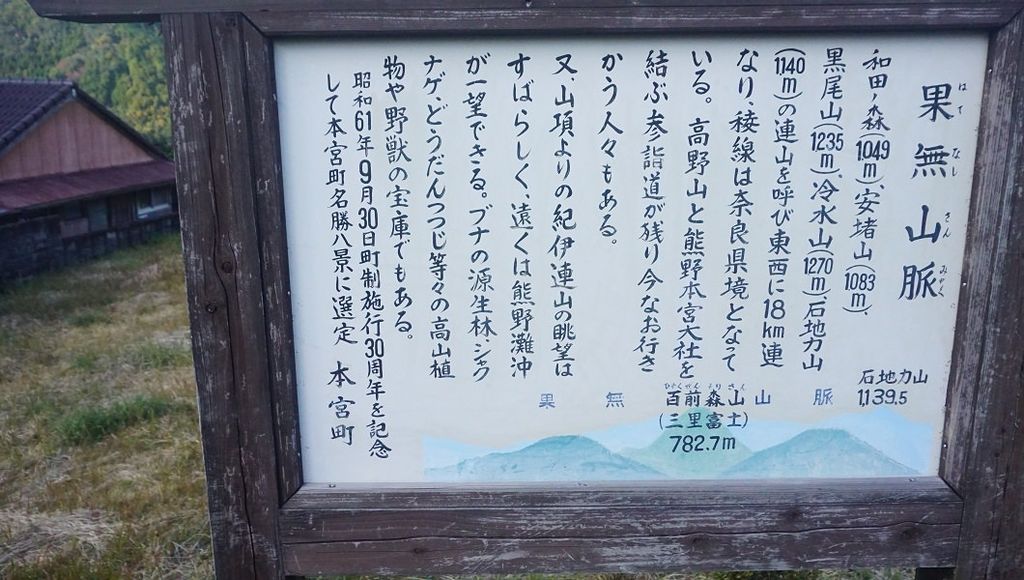 果無山脈
はて なし さん みゃく
和田ノ森(1049m)、安堵山(1083m)、
黒尾山(1235m)、冷水山(1270m)、石地力山
(1140m)の連山を呼び東西に18km連
なり、稜線は奈良県境となって
いる。高野山と熊野本宮大社を
結ぶ参詣道が残り今なお行き
かう人々もある。
又、山項よりの紀伊連山の眺望は
すばらしく、遠くは熊野灘沖
が一望できる。ブナの源生林、シャク
ナゲ、どうだんつつじ等々の高山植
物や野獣の宝庫でもある。
昭和61年9月30日町制施行30周年を記念
して本宮町名勝八景に選定 本宮町
石地力山
1,139.5
果無山脈
百前森山
(三里富士)
782.7m